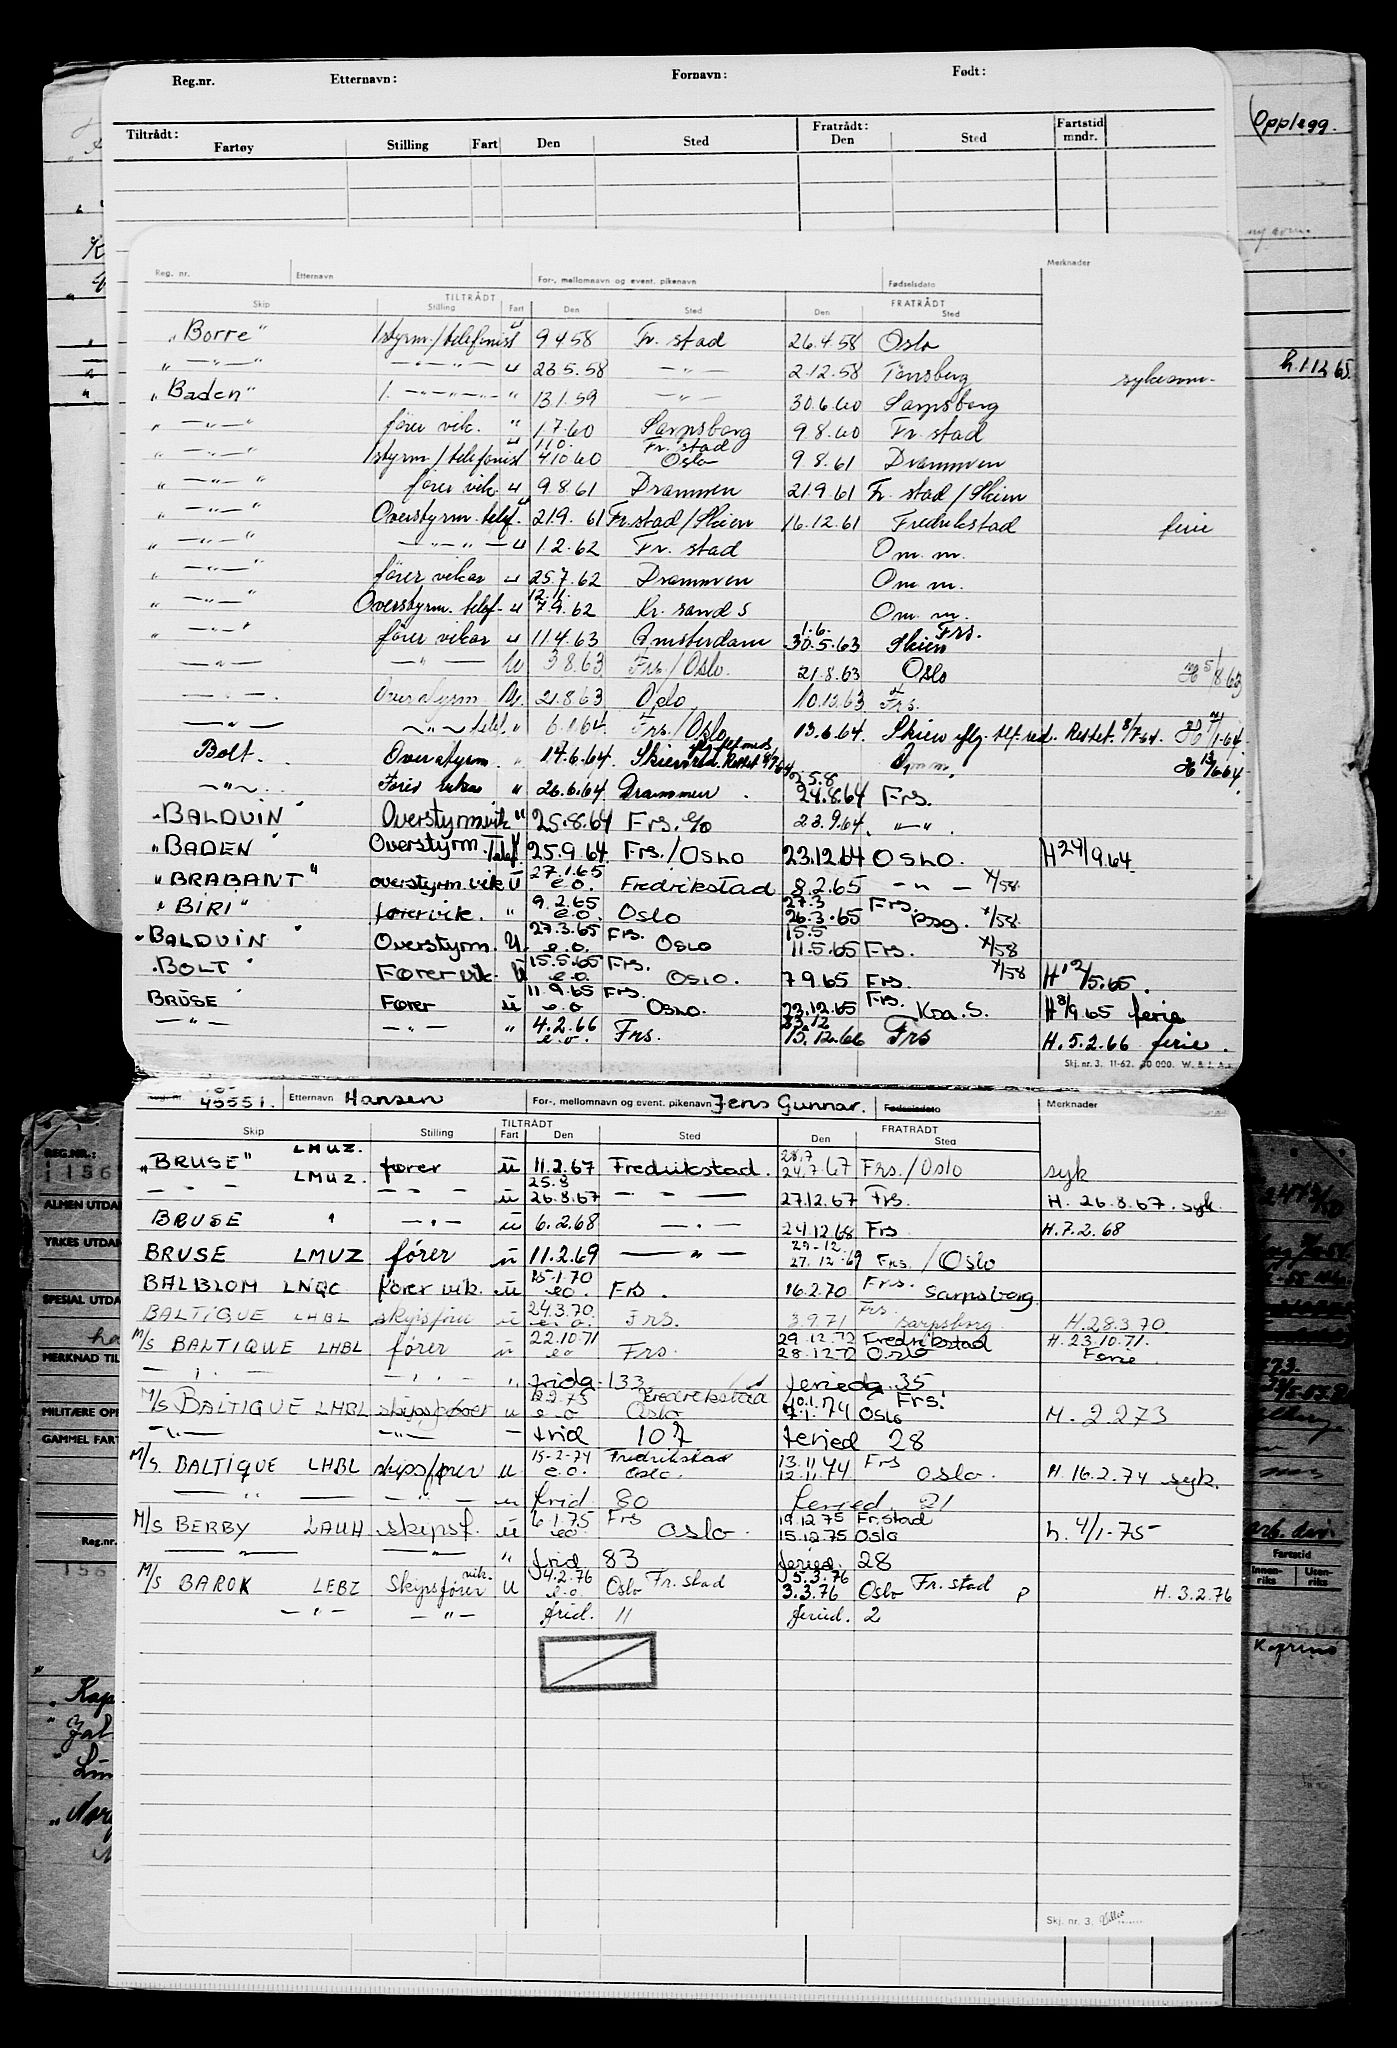 Reg.nr. Etternavn: Fornavn: Født:
Tiltrådt: Fratrådt: Fartstid
Fartøy Stilling Fart Den Sted Den Sted mndr.
Opplegg.
h. 1.12 65.
Reg. nr. Etternavn For-, mellomnavn og event. pikenavn Fødselsdato Merknader
TILTRÅDT FRATRÅDT
Skip Stilling Fart Den Sted Den Sted
"Borre" 1styrm./telefonist u 9 4 58 Fr. stad 26.4.58 Oslo
" — " — " — " — " — u 23 5.58 — " — 2.12.58 Tønsberg sykeom.
"Baden" 1. — " — " — " 13 1.59 — " — 30.6.60 Sarpsborg
" — " — " fører vik. " 1.7.60 Sarpsborg 9.8.60 Fr. stad
1.10. Fr. stad
" — " — " 1styrm/telefonist u 4 10 60 Oslo 9.8.61 Drammen
" — " — " fører vik. u 9.8.61 Drammen 21.9.61 Fr. stad/Skien
" — " — " Overstyrm. telef. " 21.9.61 Fr. stad/Skien 16.12.61 Fredrikstad ferie
" — " — " — " — " — u 1.2.62 Fr. stad Om. m.
" — " — " fører vikar u 25.7.62 Drammen Om. m.
12.11.
" — " — " Overstyrm. telef. u 7.9.62 Kr. sand S Om. m.
1.6. Frs.
" — " — " fører vikar u 11.4.63 Amsterdam 30.5.63 Skien
— " — — " — U 3 8.63 Frs./Oslo. 21.8.63 Oslo 5/8 63
— " — Overstyrm U. 21.8.63 Oslo 10.12.63 Frs.
— " — — " — telef. " 6.1.64 Frs./Oslo 13.6.64. Skien flg. tlf. red. Rettet. 8/7-64. 1-64.
Bolt. Overstyrm. " 14.6.64. Skien Rettet 8/7 64 Omm. 13/6 64.
25.8
— " — Fører vikar " 26.6.64 Drammen. 24.8.64 Frs.
"BALDUIN" Overstyrm vik " 25.8.64 Frs. e/o 23.9.64. — " —
"BADEN" Overstyrm. Telef. U 25.9.64. Frs./OSLO 23.12.64 OSLO. H 24/9.64
27.1.65
"BRABANT" overstyrm vik U e.o. Fredrikstad 8.2.65 — " — x/58.
9.2.65 27.3 Frs.
"BIRI" fører vik. " e.o. Oslo 26.3.65 Psg. x/58.
27.3.65 Frs. 15.5
"BALDUIN" Overstyrm. U. e.o. Oslo 11.5.65 Frs. x/58
15.5.65 Frs.
"BOLT" Fører vik. U e.o. Oslo. 7 9.65 Frs. x/58 H 12/5.65.
11.9.65 Frs. Frs.
BRUSE Fører u e.o Oslo. 22.12.65 Kra. S. H 8/9.65 ferie
4.2.66 23.12
— " — — " — " e.o. Frs. 15.12.66 Frs H. 5.2.66 ferie.
Skj. nr. 3. 11-62. 30 000. W. B. J. A.s
Reg. nr. 45551. Etternavn Hansen For-, mellomnavn og event. pikenavn Jens Gunnar. Fødselsdato Merknader
TILTRÅDT FRATRÅDT
Skip Stilling Fart Den Sted Den Sted
28.7
"BRUSE" LMUZ. fører u 11.2.67 Fredrikstad. 24.7.67 Frs./Oslo syk
25.8
— " — LMUZ. — " — u 26.8.67 — " — 27.12.67 Frs. H. 26.8.67. syk.
BRUSE " — " — u 6.2.68 — " — 24.12.68 Frs. H. 7.2.68
29-12
BRUSE LMUZ fører u 11.2.69 — " — 27.12-69 Frs./Oslo
15.1.70 Frs.
BALBLOM LNQC fører vik. u eo. Frs. 16.2.70 Sarpsborg
24.3.70 Frs.
BALTIQUE LHBL skipsfører u e.o. Frs. 3.9.71 Sarpsborg H. 28.3.70
22.10.71 29.12.72 Fredrikstad H. 23.10.71.
M/S BALTIQUE LHBL fører u eo Frs. 28.12-72 Oslo Ferie.
— " — — " — " fridg. 133 feriedg. 35
2.2.73 Fredrikstad 10.1. Frs.
M/S BALTIQUE LHBL skipsfører u e.o Oslo 9.1.74 Oslo H. 2.2 73
— " — — " — — frid 107 feried 28
15-2-74 Fredrikstad 13.11 Frs
M/S. BALTIQUE LHBL skipsfører u. e.o. Oslo. 12.11.74 Oslo. H. 16.2.74 syk.
— " — — " — u frid 80 feried. 21
6.1.75 Frs 19.12 75 Fr.stad
M/S BERBY LAUH skipsf. u eo Oslo. 15.12.75 Oslo h. 4/1-75
— " — — " — " frid 83 feried. 28
4.2.76 Fr. stad 5.3.76 Fr. stad
M/S BAROK LEBZ skipsfører vik. U e.o Oslo 3.3.76 Oslo P H. 3.2.76
— " — — " — frid. 11 feried. 2
Skj. nr. 3.
REG.NR.:
ALMEN UTDA
YRKES UTDA
SPESIAL UTDA
MERKNAD TIL
MILITÆRE OPP
GAMMEL FART
Reg.nr.
Fartstid
Innenriks Utenriks